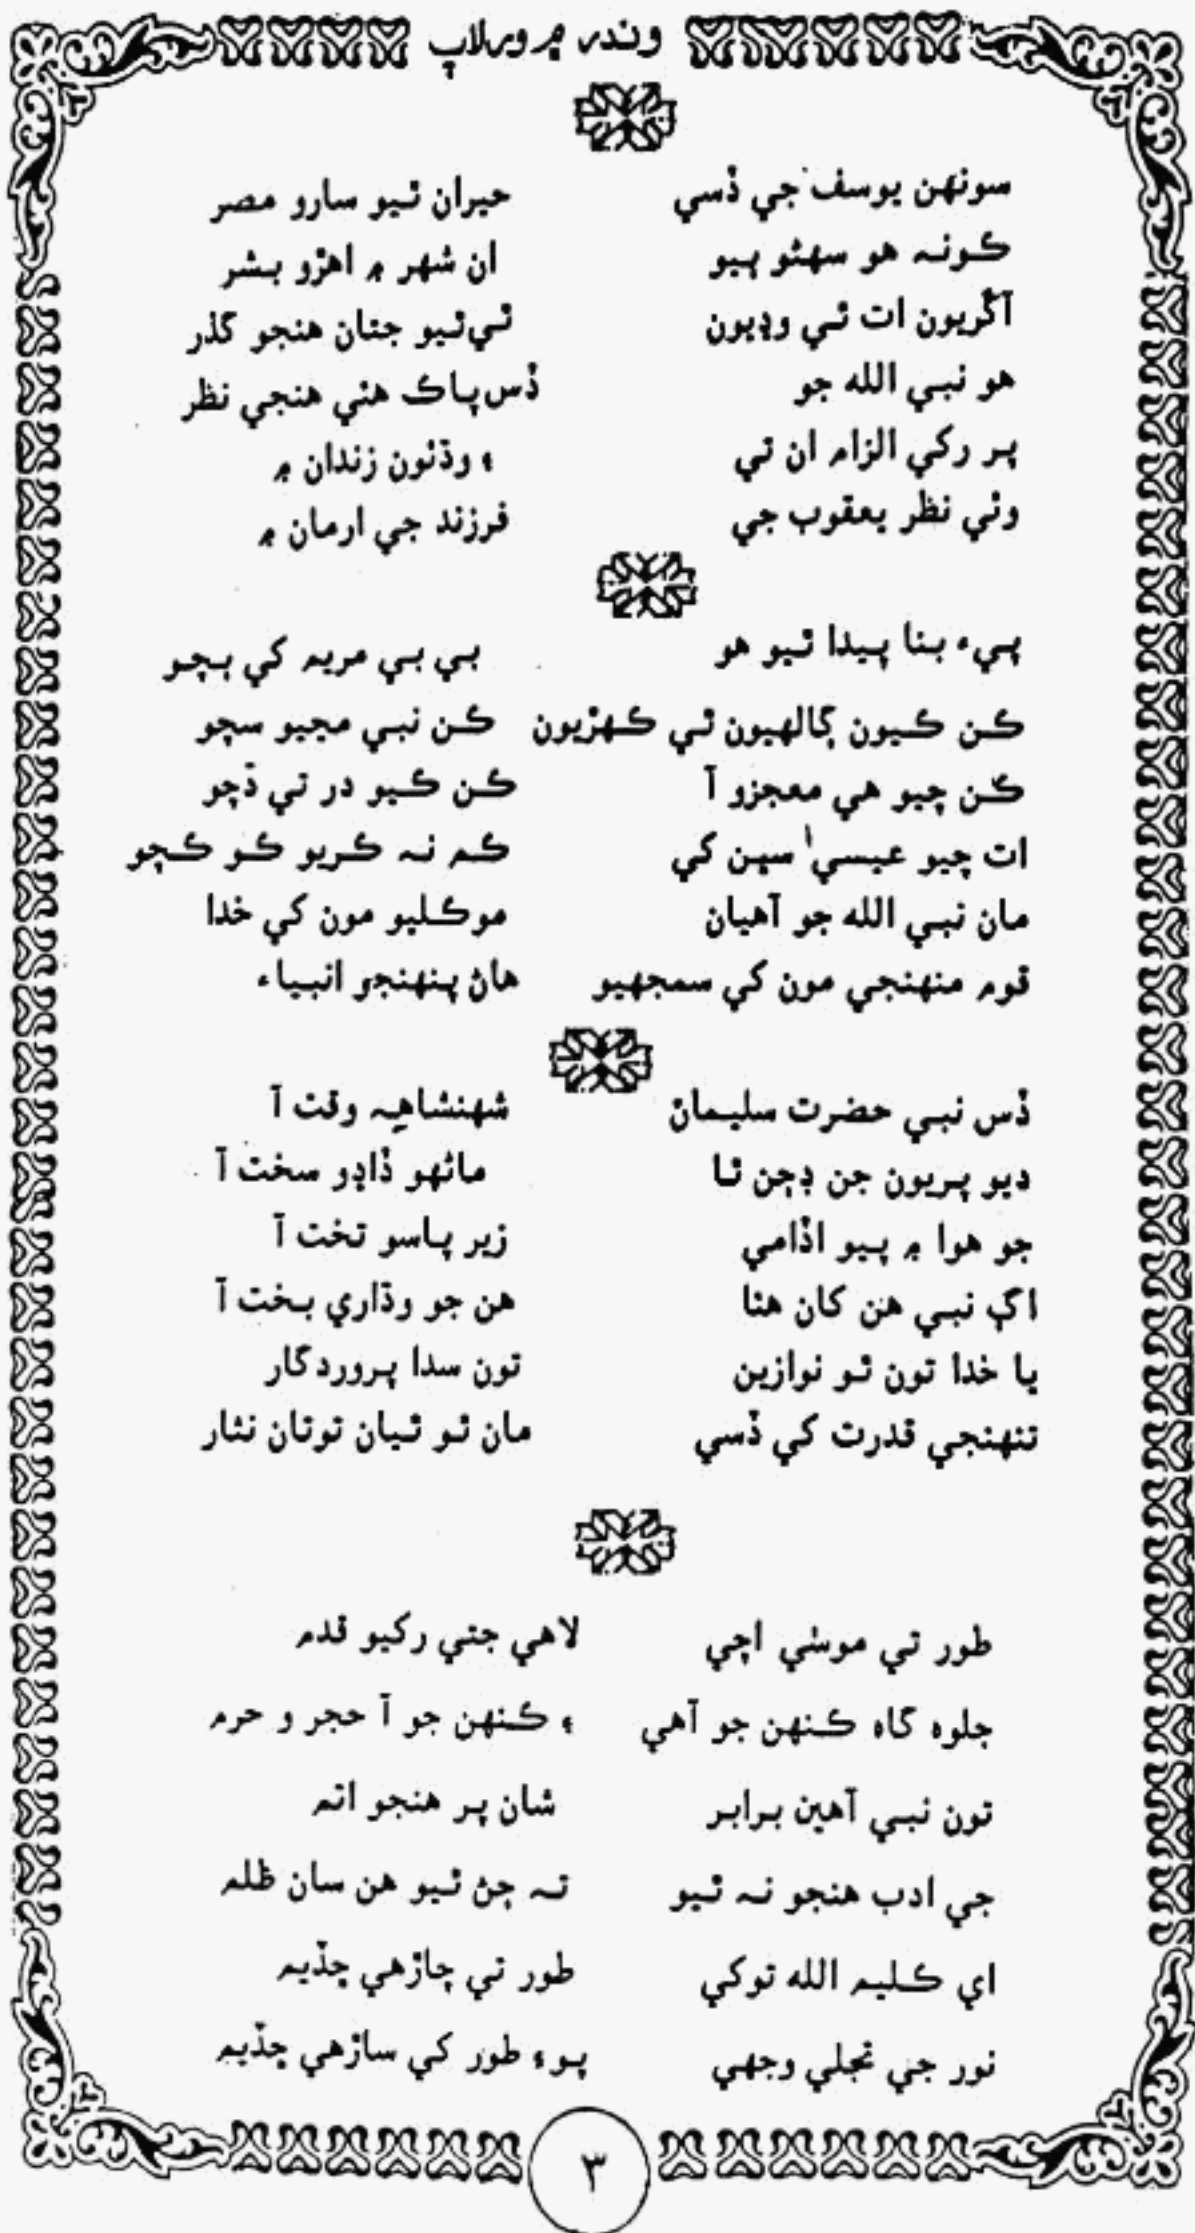 وندر ۾ ورلاپ
سونهن يوسف جي ڏسي حيران ٿيو سارو مصر
ڪونہ هو سهڻو ٻيو ان شهر ۾ اهڙو بشر
آڱريون ات ٿي وڍيون ٿي ٿيو جتان هنجو گذر
هو نبي الله جو ڏس پاڪ هئي هنجي نظر
پر رکي الزام ان تي ۽ وڌئون زندان ۾
وئي نظر يعقوب جي فرزند جي ارمان ۾
پيءُ بنا پيدا ٿيو هو بي بي مريم کي ٻچو
ڪن ڪيون ڳالهيون ٿي ڪهڙيون ڪن نبي مڃيو سچو
ڪن چيو هي معجزو آ ڪن ڪيو در تي ڏچو
ات چيو عيسيٰ سڀن کي ڪم نہ ڪريو ڪو ڪچو
مان نبي الله جو آهيان موڪليو مون کي خدا
قوم منهنجي مون کي سمجهيو هاڻ پنهنجو انبياء
ڏس نبي حضرت سليمان شهنشاهِہ وقت آ
ديو پريون جن ڊڄن ٿا ماڻهو ڏاڍو سخت آ
جو هوا ۾ پيو اڏامي زير پاسو تخت آ
اڳ نبي هن کان هئا هن جو وڌاري بخت آ
يا خدا تون ٿو نوازين تون سدا پروردگار
تنهنجي قدرت کي ڏسي مان ٿو ٿيان توتان نثار
طور تي موسٰي اچي لاهي جتي رکيو قدم
جلوه گاه ڪنهن جو آهي ۽ ڪنهن جو آ حجر و حرم
تون نبي آهين برابر شان پر هنجو اتم
جي ادب هنجو نہ ٿيو تہ ڄڻ ٿيو هن سان ظلم
اي ڪليم الله توکي طور تي چاڙهي ڇڏيم
نور جي تجلي وجهي پوءِ طور کي ساڙهي ڇڏيم
٣